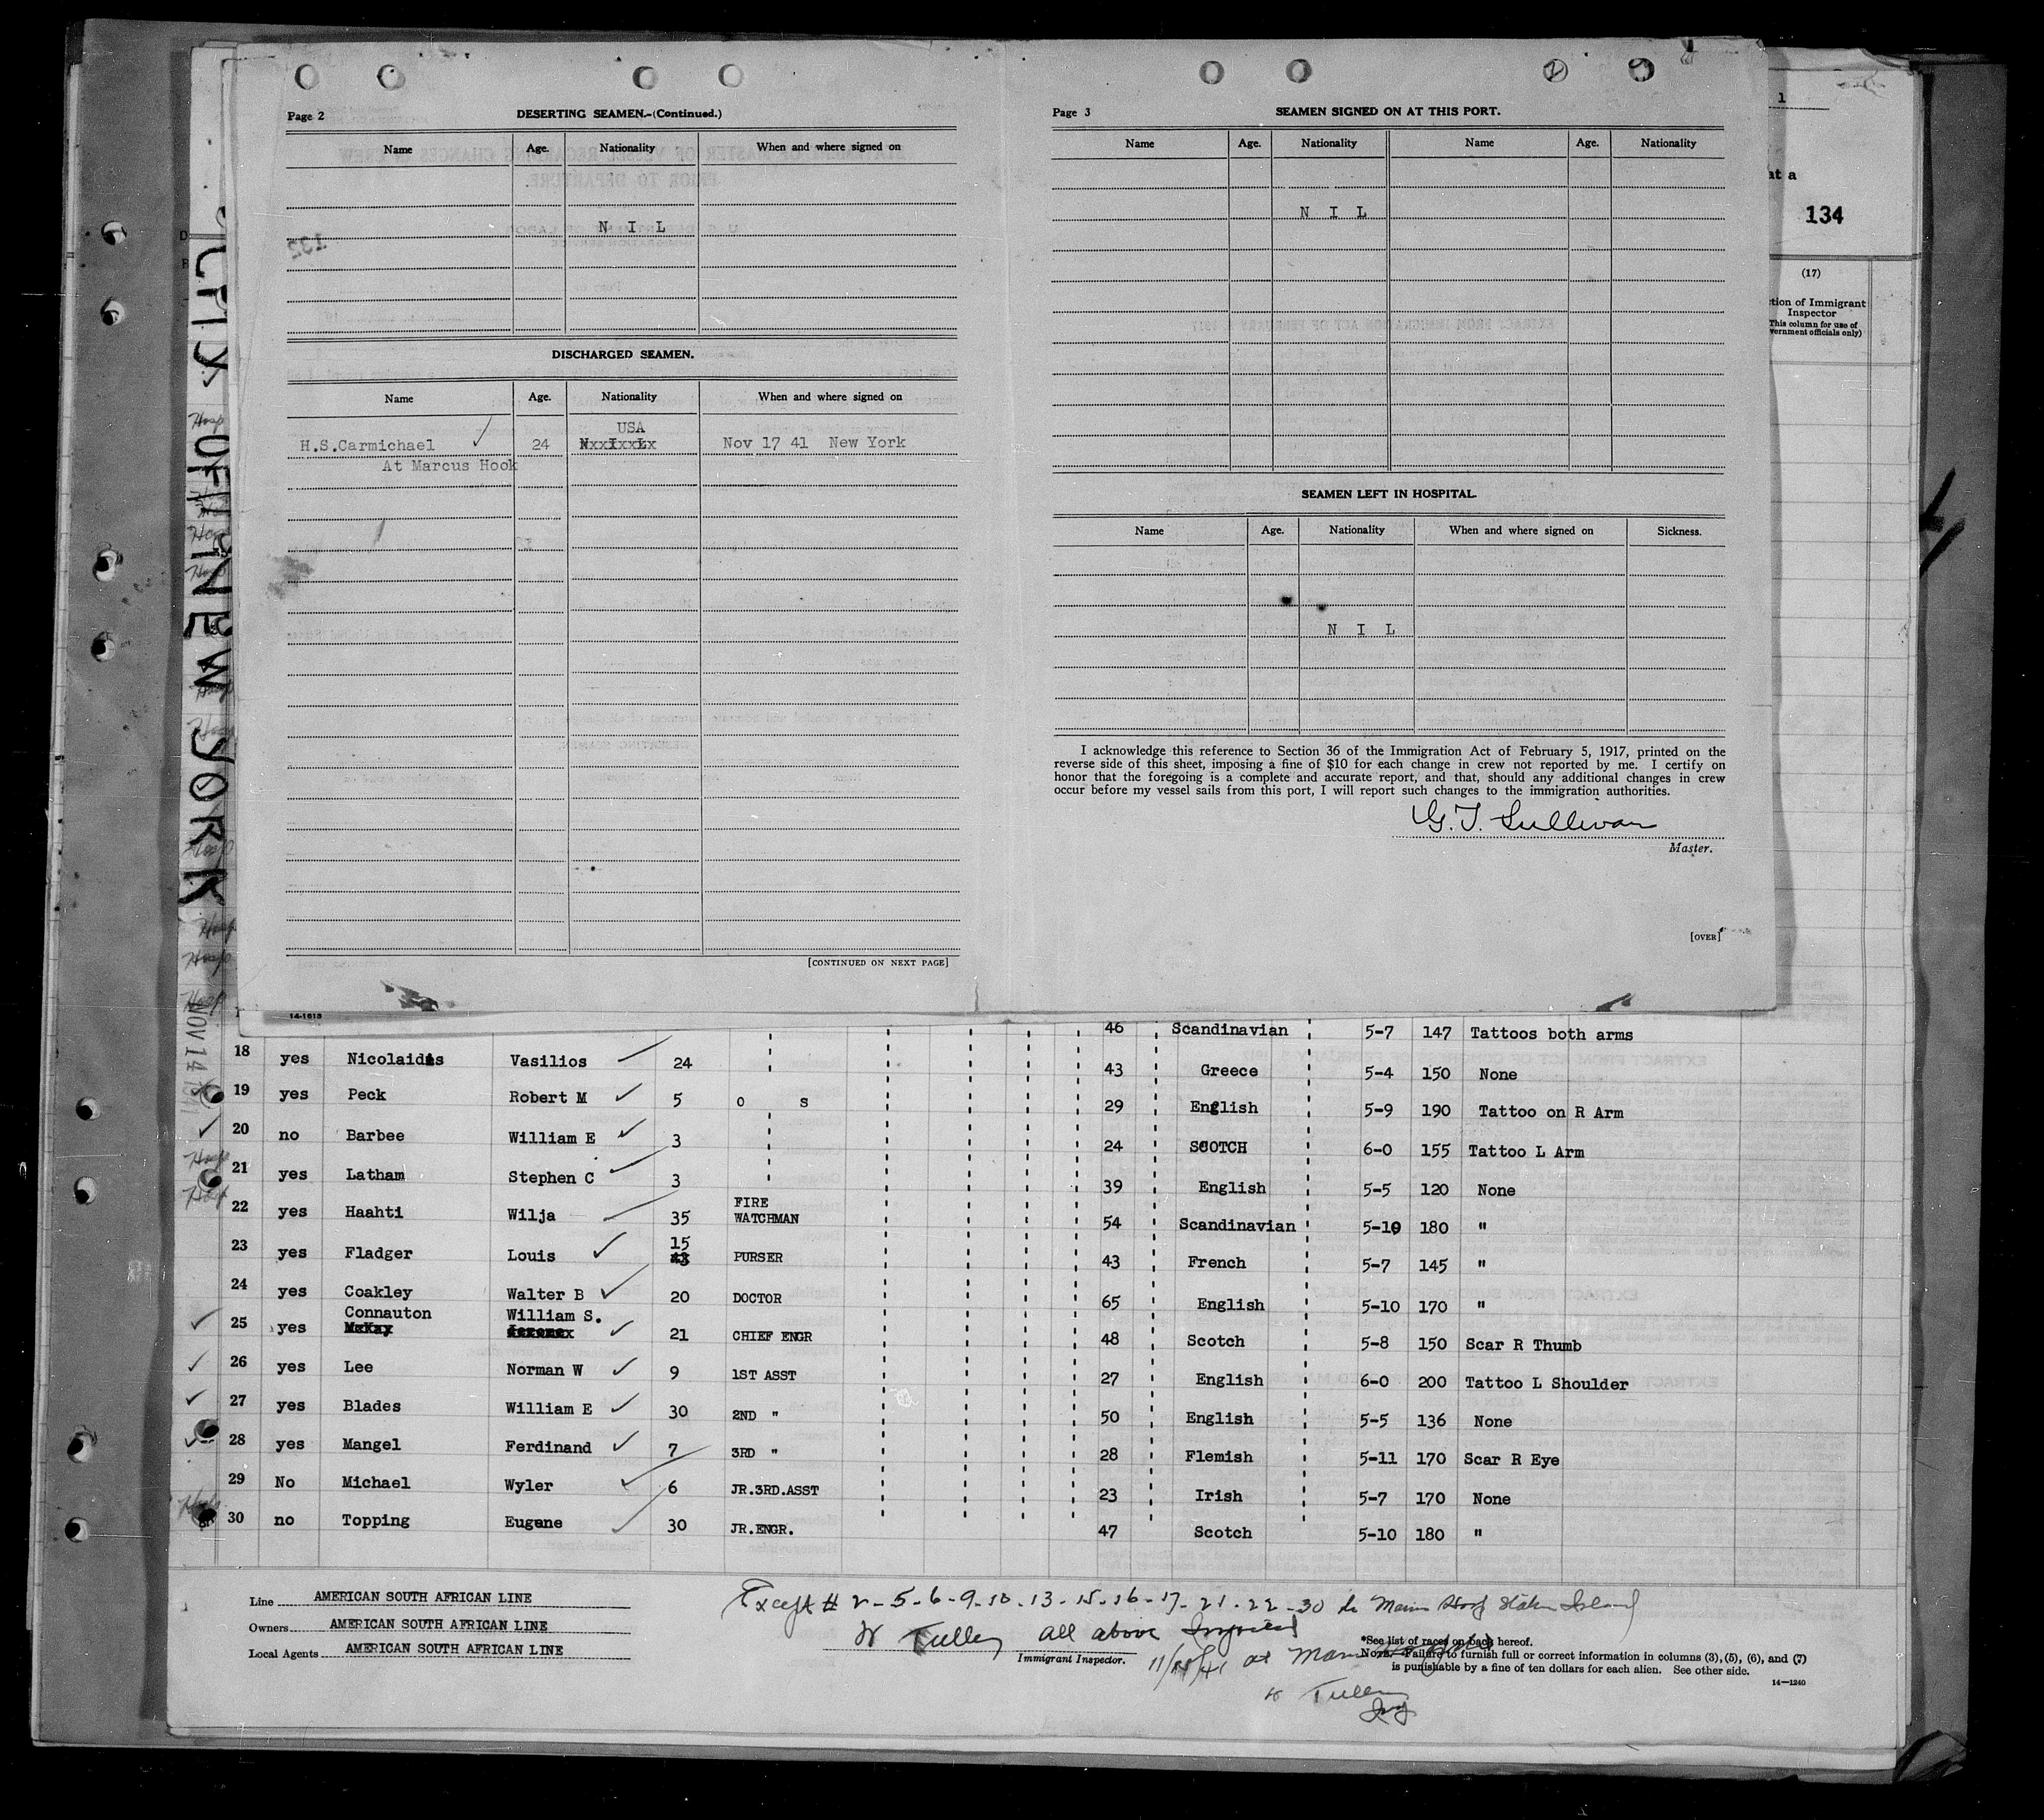 Page 2
DESERTING SEAMEN.-(Continued.)
Name Age. Nationality When and where signed on
N I L
132
DISCHARGED SEAMEN.
Name Age. Nationality When and where signed on
USA
H.S.Carmichael 24 NxxIxxLx Nov 17 41 New York
At Marcus Hook
[CONTINUED ON NEXT PAGE]
14-1613
Page 3
SEAMEN SIGNED ON AT THIS PORT.
Name Age. Nationality Name Age. Nationality
N I L
SEAMEN LEFT IN HOSPITAL.
Name Age. Nationality When and where signed on Sickness.
N I L
I acknowledge this reference to Section 36 of the Immigration Act of February 5, 1917, printed on the
reverse side of this sheet, imposing a fine of $10 for each change in crew not reported by me. I certify on
honor that the foregoing is a complete and accurate report, and that, should any additional changes in crew
occur before my vessel sails from this port, I will report such changes to the immigration authorities.
G. T. Sullivan
Master.
[OVER]
1
at a
134
(17)
ction of Immigrant
Inspector
This column for use of
vernment officials only)
CITY OF NEW YORK
NOV 14 1941
46 Scandinavian 5-7 147 Tattoos both arms
18 yes Nicolaidis Vasilios 24 43 Greece 5-4 150 None
19 yes Peck Robert M 5 O S 29 English 5-9 190 Tattoo on R Arm
20 no Barbee William E 3 24 SCOTCH 6-0 155 Tattoo L Arm
21 yes Latham Stephen C 3 39 English 5-5 120 None
22 yes Haahti Wilja 35 FIRE WATCHMAN 54 Scandinavian 5-10 180 "
23 yes Fladger Louis 15 43 PURSER 43 French 5-7 145 "
24 yes Coakley Walter B 20 DOCTOR 65 English 5-10 170 "
Connauton William S.
25 yes McKay 21 CHIEF ENGR 48 Scotch 5-8 150 Scar R Thumb
26 yes Lee Norman W 9 1ST ASST 27 English 6-0 200 Tattoo L Shoulder
27 yes Blades William E 30 2ND " 50 English 5-5 136 None
28 yes Mangel Ferdinand 7 3RD " 28 Flemish 5-11 170 Scar R Eye
29 No Michael Wyler 6 JR.3RD.ASST 23 Irish 5-7 170 None
30 no Topping Eugene 30 JR.ENGR. 47 Scotch 5-10 180 "
Line AMERICAN SOUTH AFRICAN LINE
Owners AMERICAN SOUTH AFRICAN LINE
Local Agents AMERICAN SOUTH AFRICAN LINE
Except # 2-5-6-9-10-13-15-16-17-21-22-30 Marine Hosp Staten Island
W Tulley all above Inspected
Immigrant Inspector.
at Marine
W Tulley
Insp
*See list of races on back hereof.
NOTE.—Failure to furnish full or correct information in columns (3), (5), (6), and (7)
is punishable by a fine of ten dollars for each alien. See other side.
14-1240